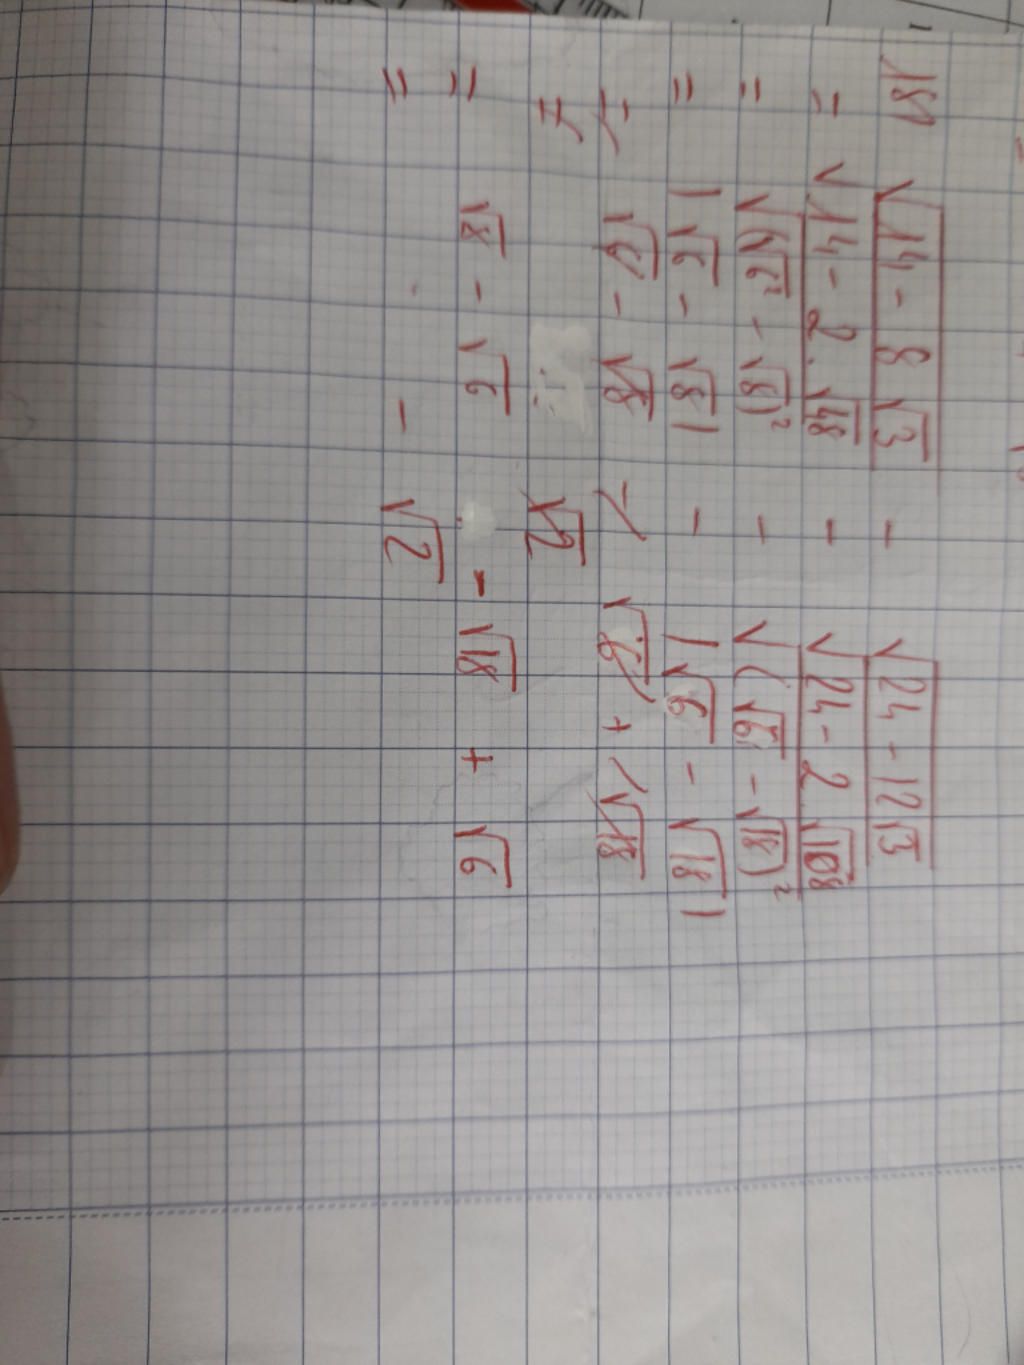 18) √(14 - 8√3) - √(24 - 12√3)
= √(14 - 2.√48) - √(24 - 2√108)
= √(√6² - √8)² - √(√6 - √18)²
= |√6 - √8| - |√6 - √18|
= √6 - √8 - √6 + √18
= √2
= √8 - √6 - √18 + √6
= -√2